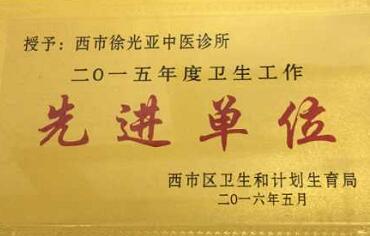 授予：西市徐光亚中医诊所
二〇一五年度卫生工作
先进单位
西市区卫生和计划生育局
二〇一六年五月